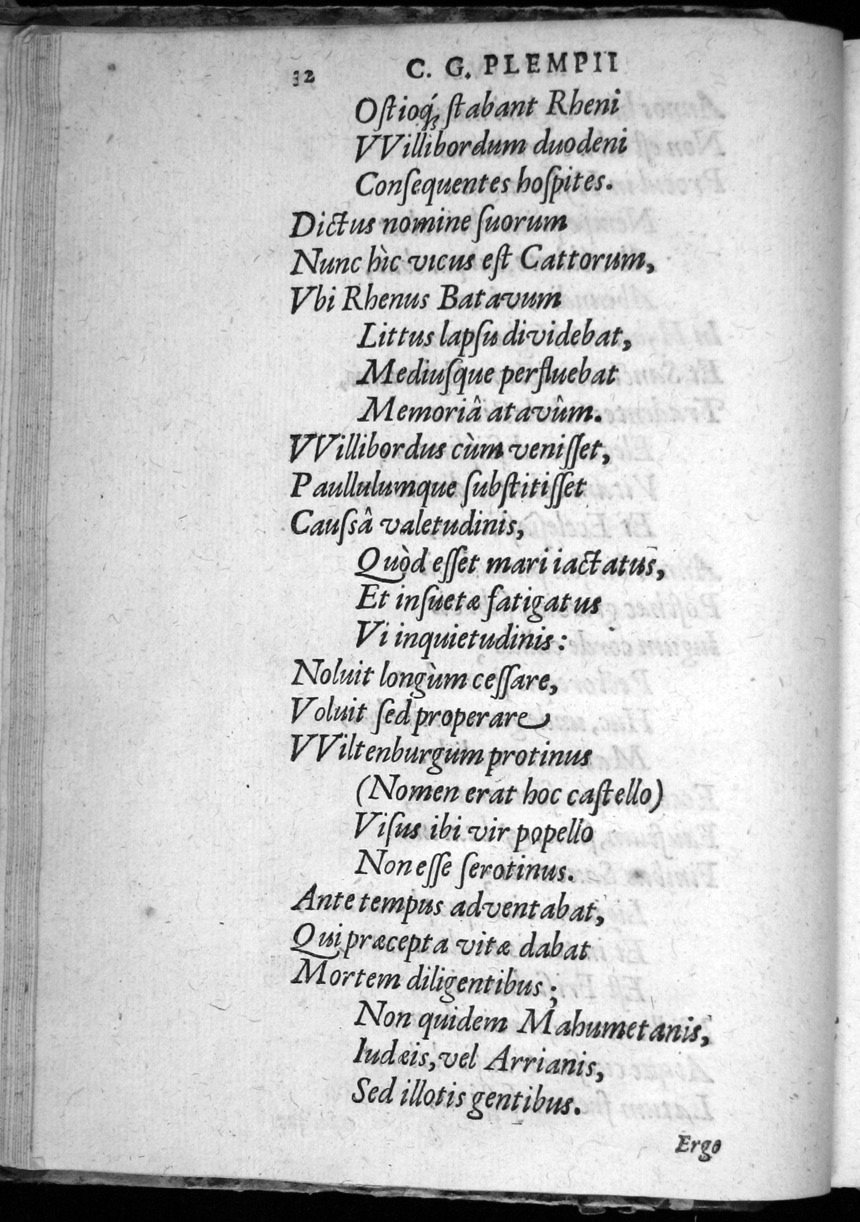 32 C. G. PLEMPII
Oſtioq́; ſtabant Rheni
VVillibordum duodeni
Conſequentes hoſpites.
Dictus nomine ſuorum
Nunc hìc vicus eſt Cattorum,
Vbi Rhenus Batavum
Littus lapſu dividebat,
Mediuſque perfluebat
Memoriâ atavûm.
VVillibordus cùm veniſſet,
Paullulumque ſubſtitiſſet
Cauſsâ valetudinis,
Quòd eſſet mari iactatus,
Et inſuetæ fatigatus
Vi inquietudinis:
Noluit longùm ceſſare,
Voluit ſed properare
VViltenburgum protinus
(Nomen erat hoc caſtello)
Viſus ibi vir popello
Non eſſe ſerotinus.
Ante tempus adventabat,
Qui præcepta vitæ dabat
Mortem diligentibus;
Non quidem Mahumetanis,
Iudæis, vel Arrianis,
Sed illotis gentibus.
Ergo